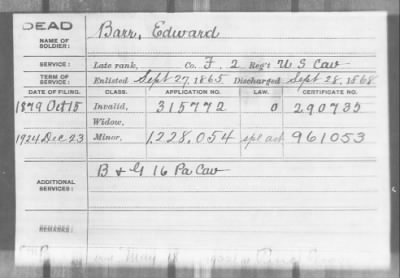 DEAD
NAME OF SOLDIER: Barr, Edward
SERVICE: Late rank, Co. F, 2 Reg't U S Cav
TERM OF SERVICE: Enlisted Sept 27, 1865 Discharged Sept 28, 1868
DATE OF FILING. CLASS. APPLICATION NO. LAW. CERTIFICATE NO.
1879 Oct 15 Invalid, 315772 0 290735
Widow,
1924 Dec 23 Minor, 1,228,054 spl act 961053
ADDITIONAL SERVICES: B & G 16 Pa Cav
REMARKS: